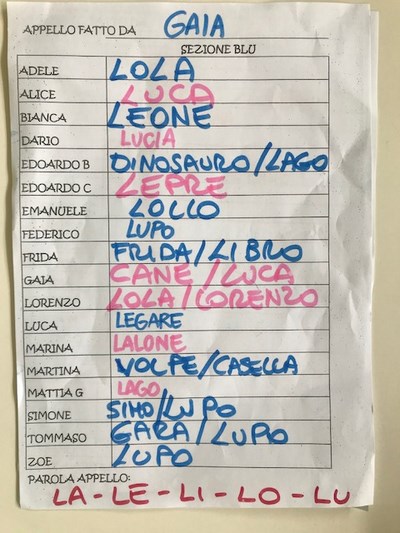 APPELLO FATTO DA GAIA
SEZIONE BLU
ADELE LOLA
ALICE LUCA
BIANCA LEONE
DARIO LUCIA
EDOARDO B DINOSAURO/LAGO
EDOARDO C LEPRE
EMANUELE LOLLO
FEDERICO LUPO
FRIDA FRIDA/LIBRO
GAIA CANE/LUCA
LORENZO LOLA/LORENZO
LUCA LEGARE
MARINA LALONE
MARTINA VOLPE/CASELLA
MATTIA G LAGO
SIMONE SIMO/LUPO
TOMMASO GARA/LUPO
ZOE LUPO
PAROLA APPELLO:
LA-LE-LI-LO-LU